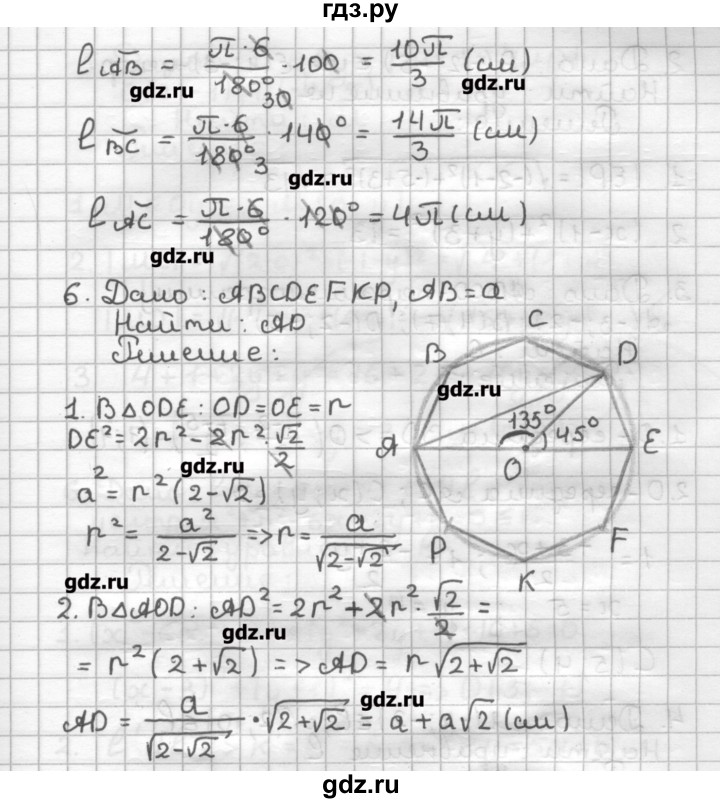 гдз.ру
l ◡AB = π·6/180° · 100 = 10π/3 (см)
30
gdz.ru gdz.ru
l ◡BC = π·6/180° · 140° = 14π/3 (см)
3
gdz.ru
l ◡AC = π·6/180° · 120° = 4π (см)
gdz.ru
6. Дано: ABCDEFKP, AB = a
Найти: AD
Решение:
C
B D
gdz.ru
135°
45°
A E
O
P F
K
1. В △ODE: OD = OE = r
DE² = 2r² - 2r² · √2/2
gdz.ru
a² = r² (2 - √2)
r² = a²/(2 - √2) => r = a/√(2 - √2)
gdz.ru
2. В △AOD: AD² = 2r² + 2r² · √2/2 =
gdz.ru
= r² (2 + √2) => AD = r√(2 + √2)
gdz.ru
AD = a/√(2 - √2) · √(2 + √2) = a + a√2 (см)
gdz.ru